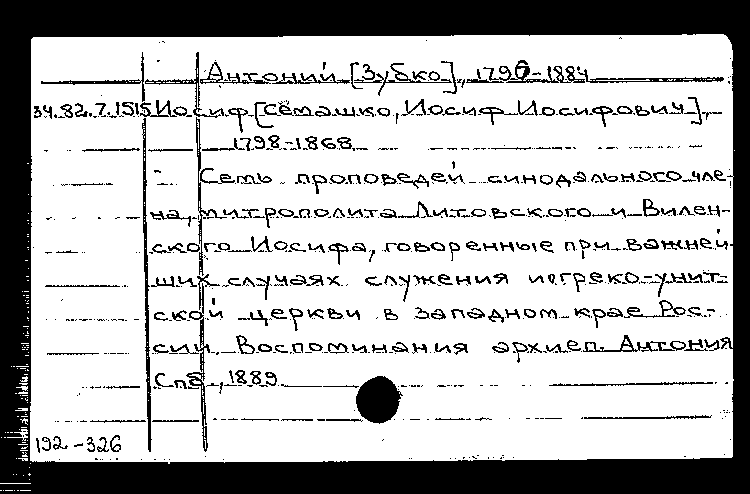 Антоний [Зубко], 1796-1884
34.82.7.1515 Иосиф [Семашко, Иосиф Иосифович],
1798-1868
Семь проповедей синодального чле-
на, митрополита Литовского и Вилен-
ского Иосифа, говоренные при важней-
ших случаях служения его греко-унит-
ской церкви в западном крае Рос-
сии. Воспоминания архиеп. Антония
Спб., 1889.
192-326